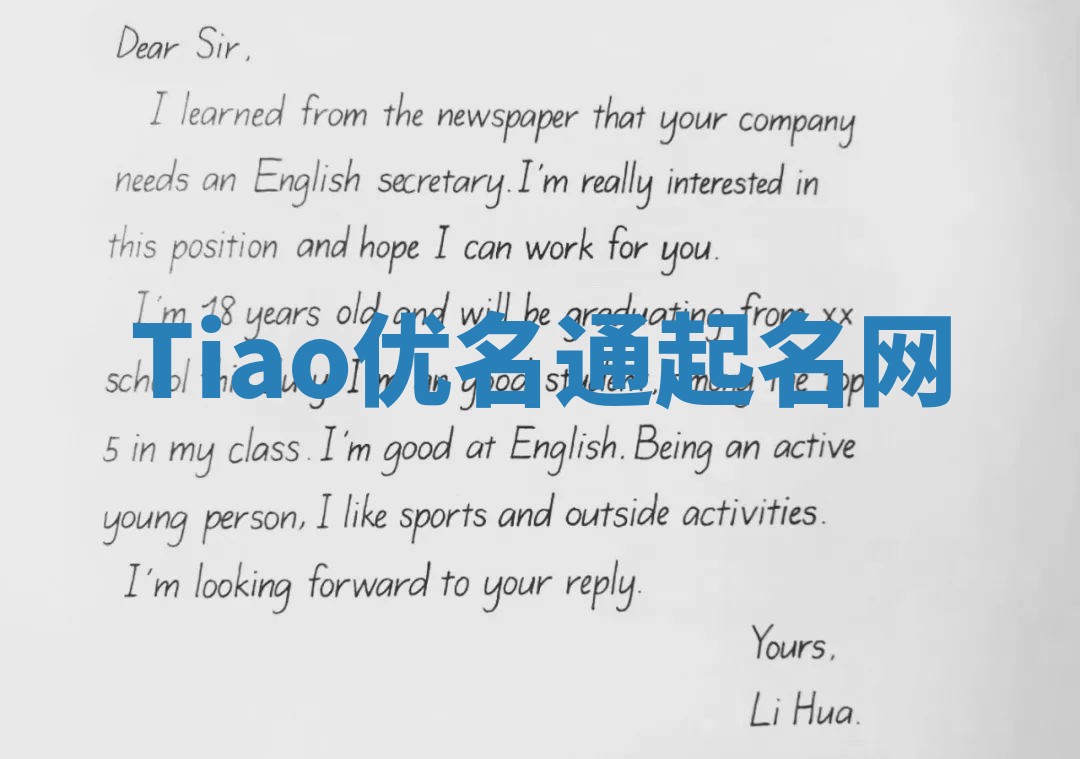 Dear Sir,
I learned from the newspaper that your company
needs an English secretary. I'm really interested in
this position and hope I can work for you.
I'm 18 years old and will be graduating from xx
Tiao优名通起名网
school this July. I'm an good student, among the top
5 in my class. I'm good at English. Being an active
young person, I like sports and outside activities.
I'm looking forward to your reply.
Yours,
Li Hua.